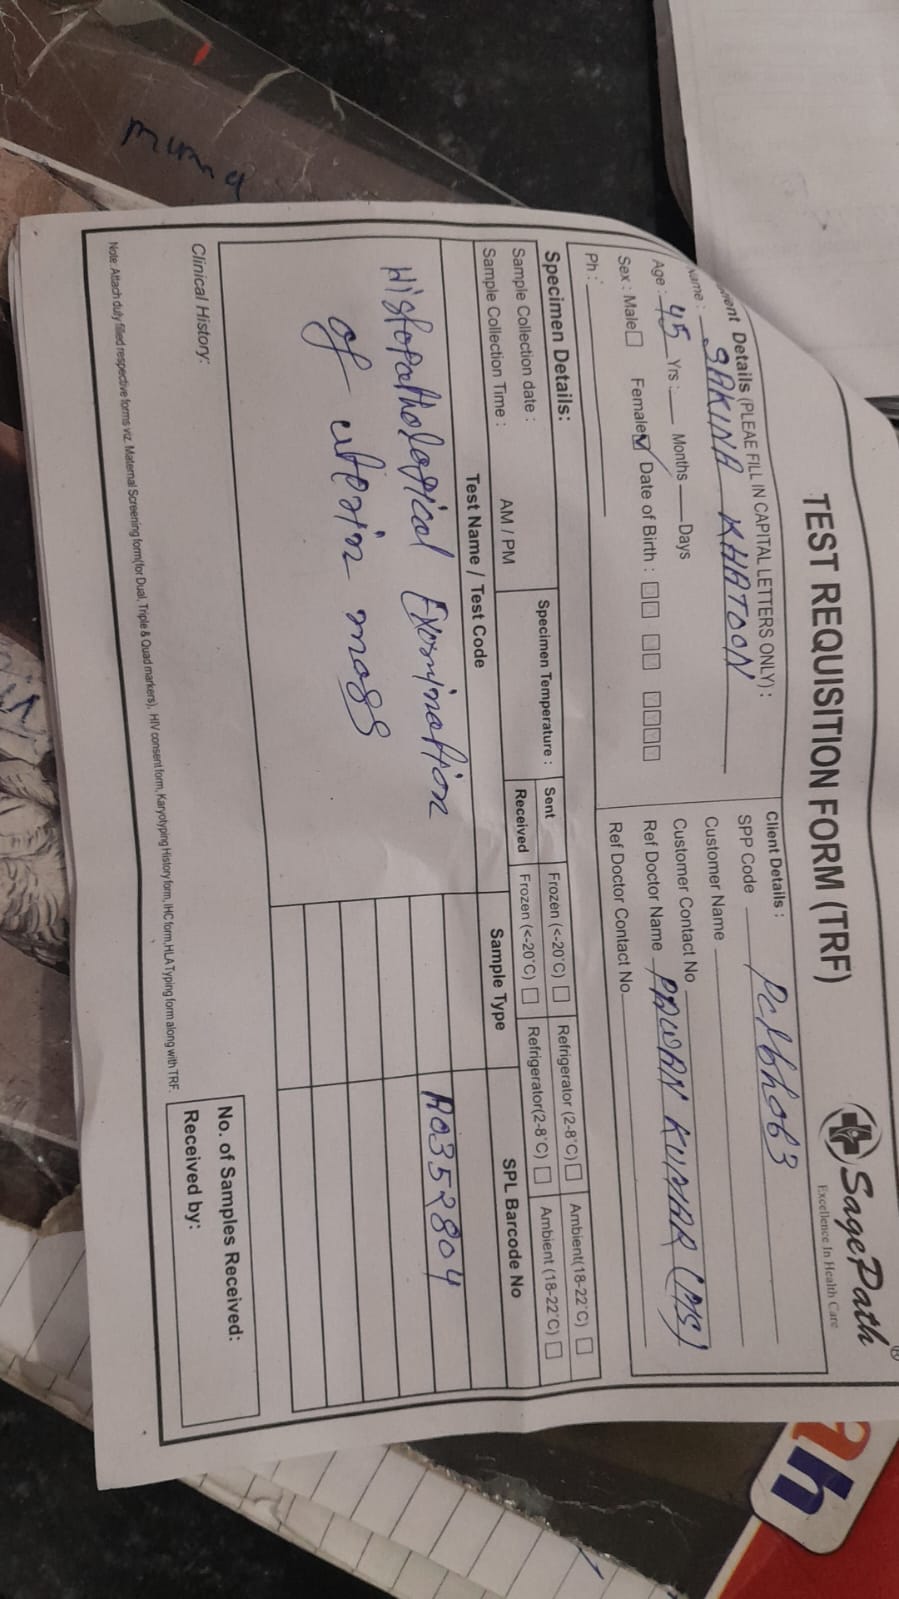 munna
TEST REQUISITION FORM (TRF)
SagePath®
Excellence In Health Care
ent Details (PLEAE FILL IN CAPITAL LETTERS ONLY) :
Name : SAKINA KHATOON
Age : 45 Yrs : Months Days
Sex : Male Female Date of Birth :
Ph :
Client Details :
SPP Code
Customer Name
Customer Contact No
Ref Doctor Name PAWAN KUMAR (MS)
Ref Doctor Contact No
Specimen Details:
Sample Collection date :
Sample Collection Time : AM / PM
Specimen Temperature :
Sent Frozen (<-20°C) Refrigerator (2-8°C) Ambient(18-22°C)
Received Frozen (<-20°C) Refrigerator(2-8°C) Ambient (18-22°C)
Test Name / Test Code Sample Type SPL Barcode No
Histopathological Examination A0352804
of uterin mass
Clinical History:
No. of Samples Received:
Received by:
Note: Attach duly filled respective forms viz. Maternal Screening form(for Dual, Triple & Quad markers), HIV consent form, Karyotyping History form, IHC form,HLA Typing form along with TRF.
ah